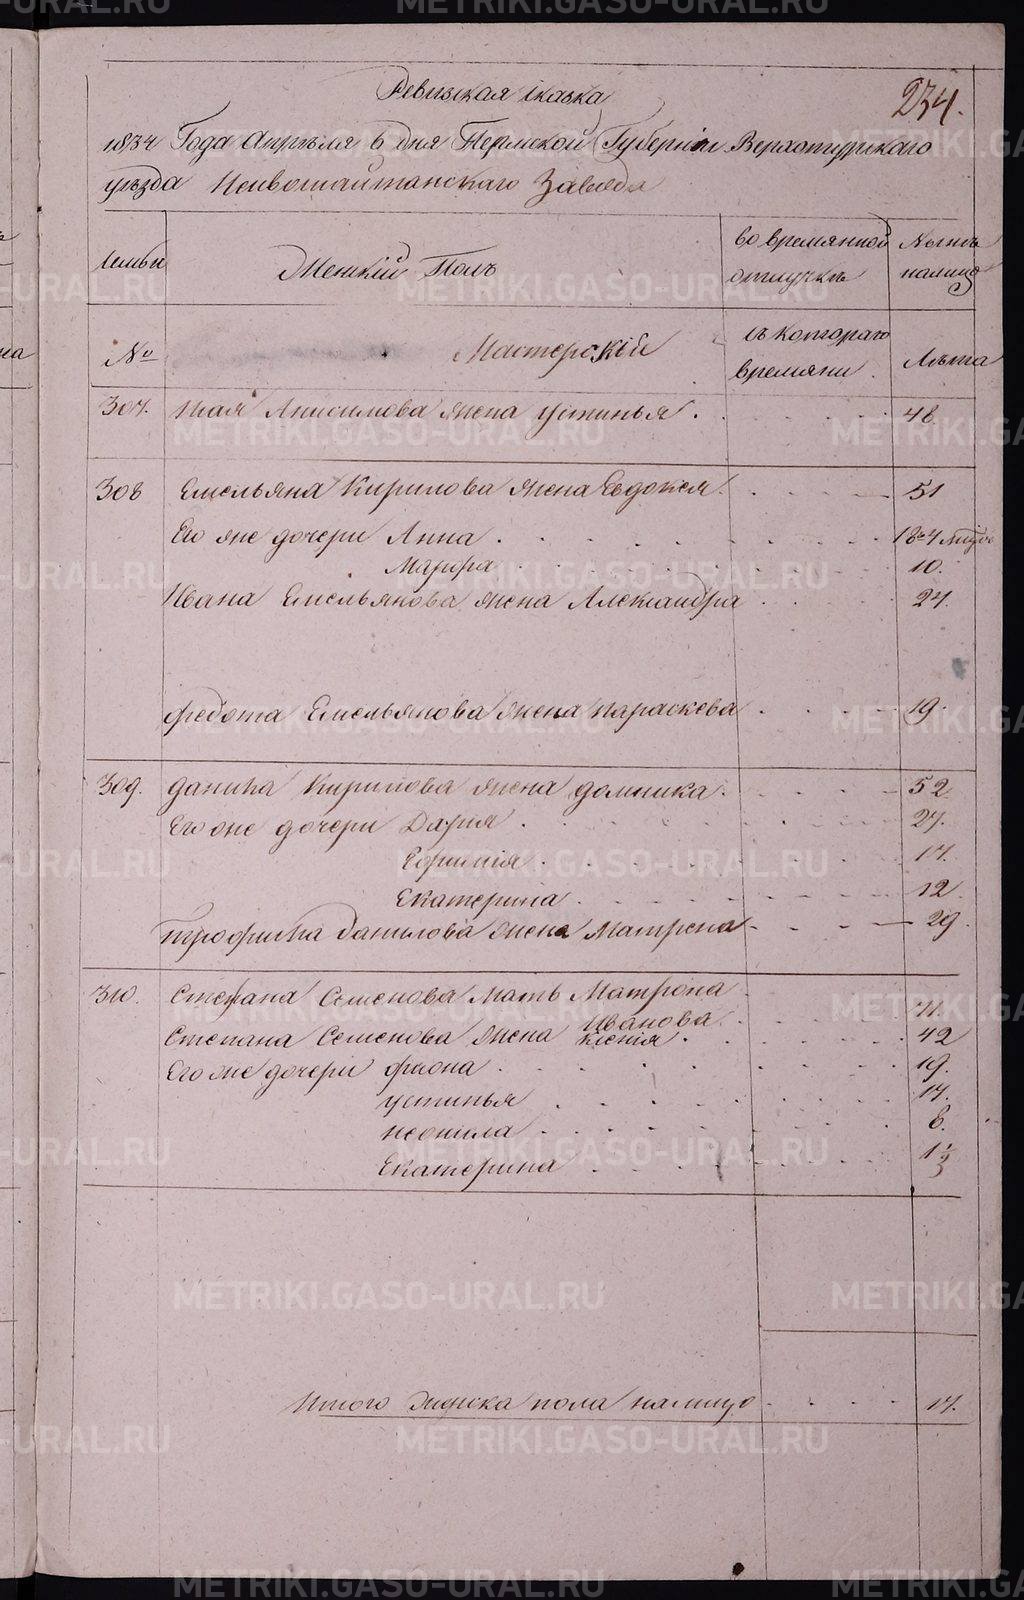 234.
Ревизская сказка
1834 Года Апреля 6 дня Пермской Губернии Верхотурскаго
уезда Невьошайтанскаго Завода
семьи Женскiй Полъ во временной отлучке Ныне налицо
№ Мастерскiй съ котораго времяни Лета
307. Анисимова жена устинья 48
308 Емельяна Кирилова жена Евдокея 51
Его же дочери Анна
Марфа 10.
Ивана Емельянова жена Александра 24.
федота Емельянова жена параскева 19.
309. данила Кирилова жена домника 52
Его же дочери Дария 27.
Ефимiя 17.
Екатерина 12
трофима Данилова жена Матрена 29.
310. Степана Семенова Мать Матрона
Иванова 71.
Степана Семенова жена ксенiя 42
Его же дочери фиона 19.
устинья 17.
неонила 8.
Екатерина 1½
Итого Женска пола налицо 17.
METRIKI.GASO-URAL.RU